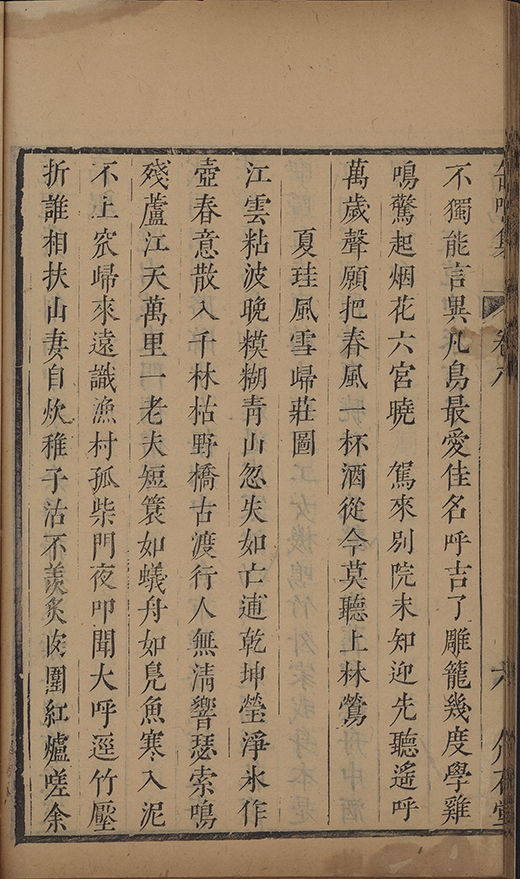 缶鳴集 卷六 六 石堂
不獨能言異凡鳥最愛佳名呼吉了雕籠幾度學雞
鳴驚起烟花六宮曉 駕來別院未知迎先聽遙呼
萬歲聲願把春風一杯酒從今莫聽上林鶯
夏珪風雪歸莊圖
江雲粘波晚糢糊青山忽失如亡逋乾坤瑩淨氷作
壺春意散入千林枯野橋古渡行人無淸響瑟索鳴
殘蘆江天萬里一老夫短簑如蟻舟如鳧魚寒入泥
不上罛歸來遠識漁村孤柴門夜叩聞大呼逕竹壓
折誰相扶山妻自炊稚子沽不羨炙肉圍紅爐嗟余